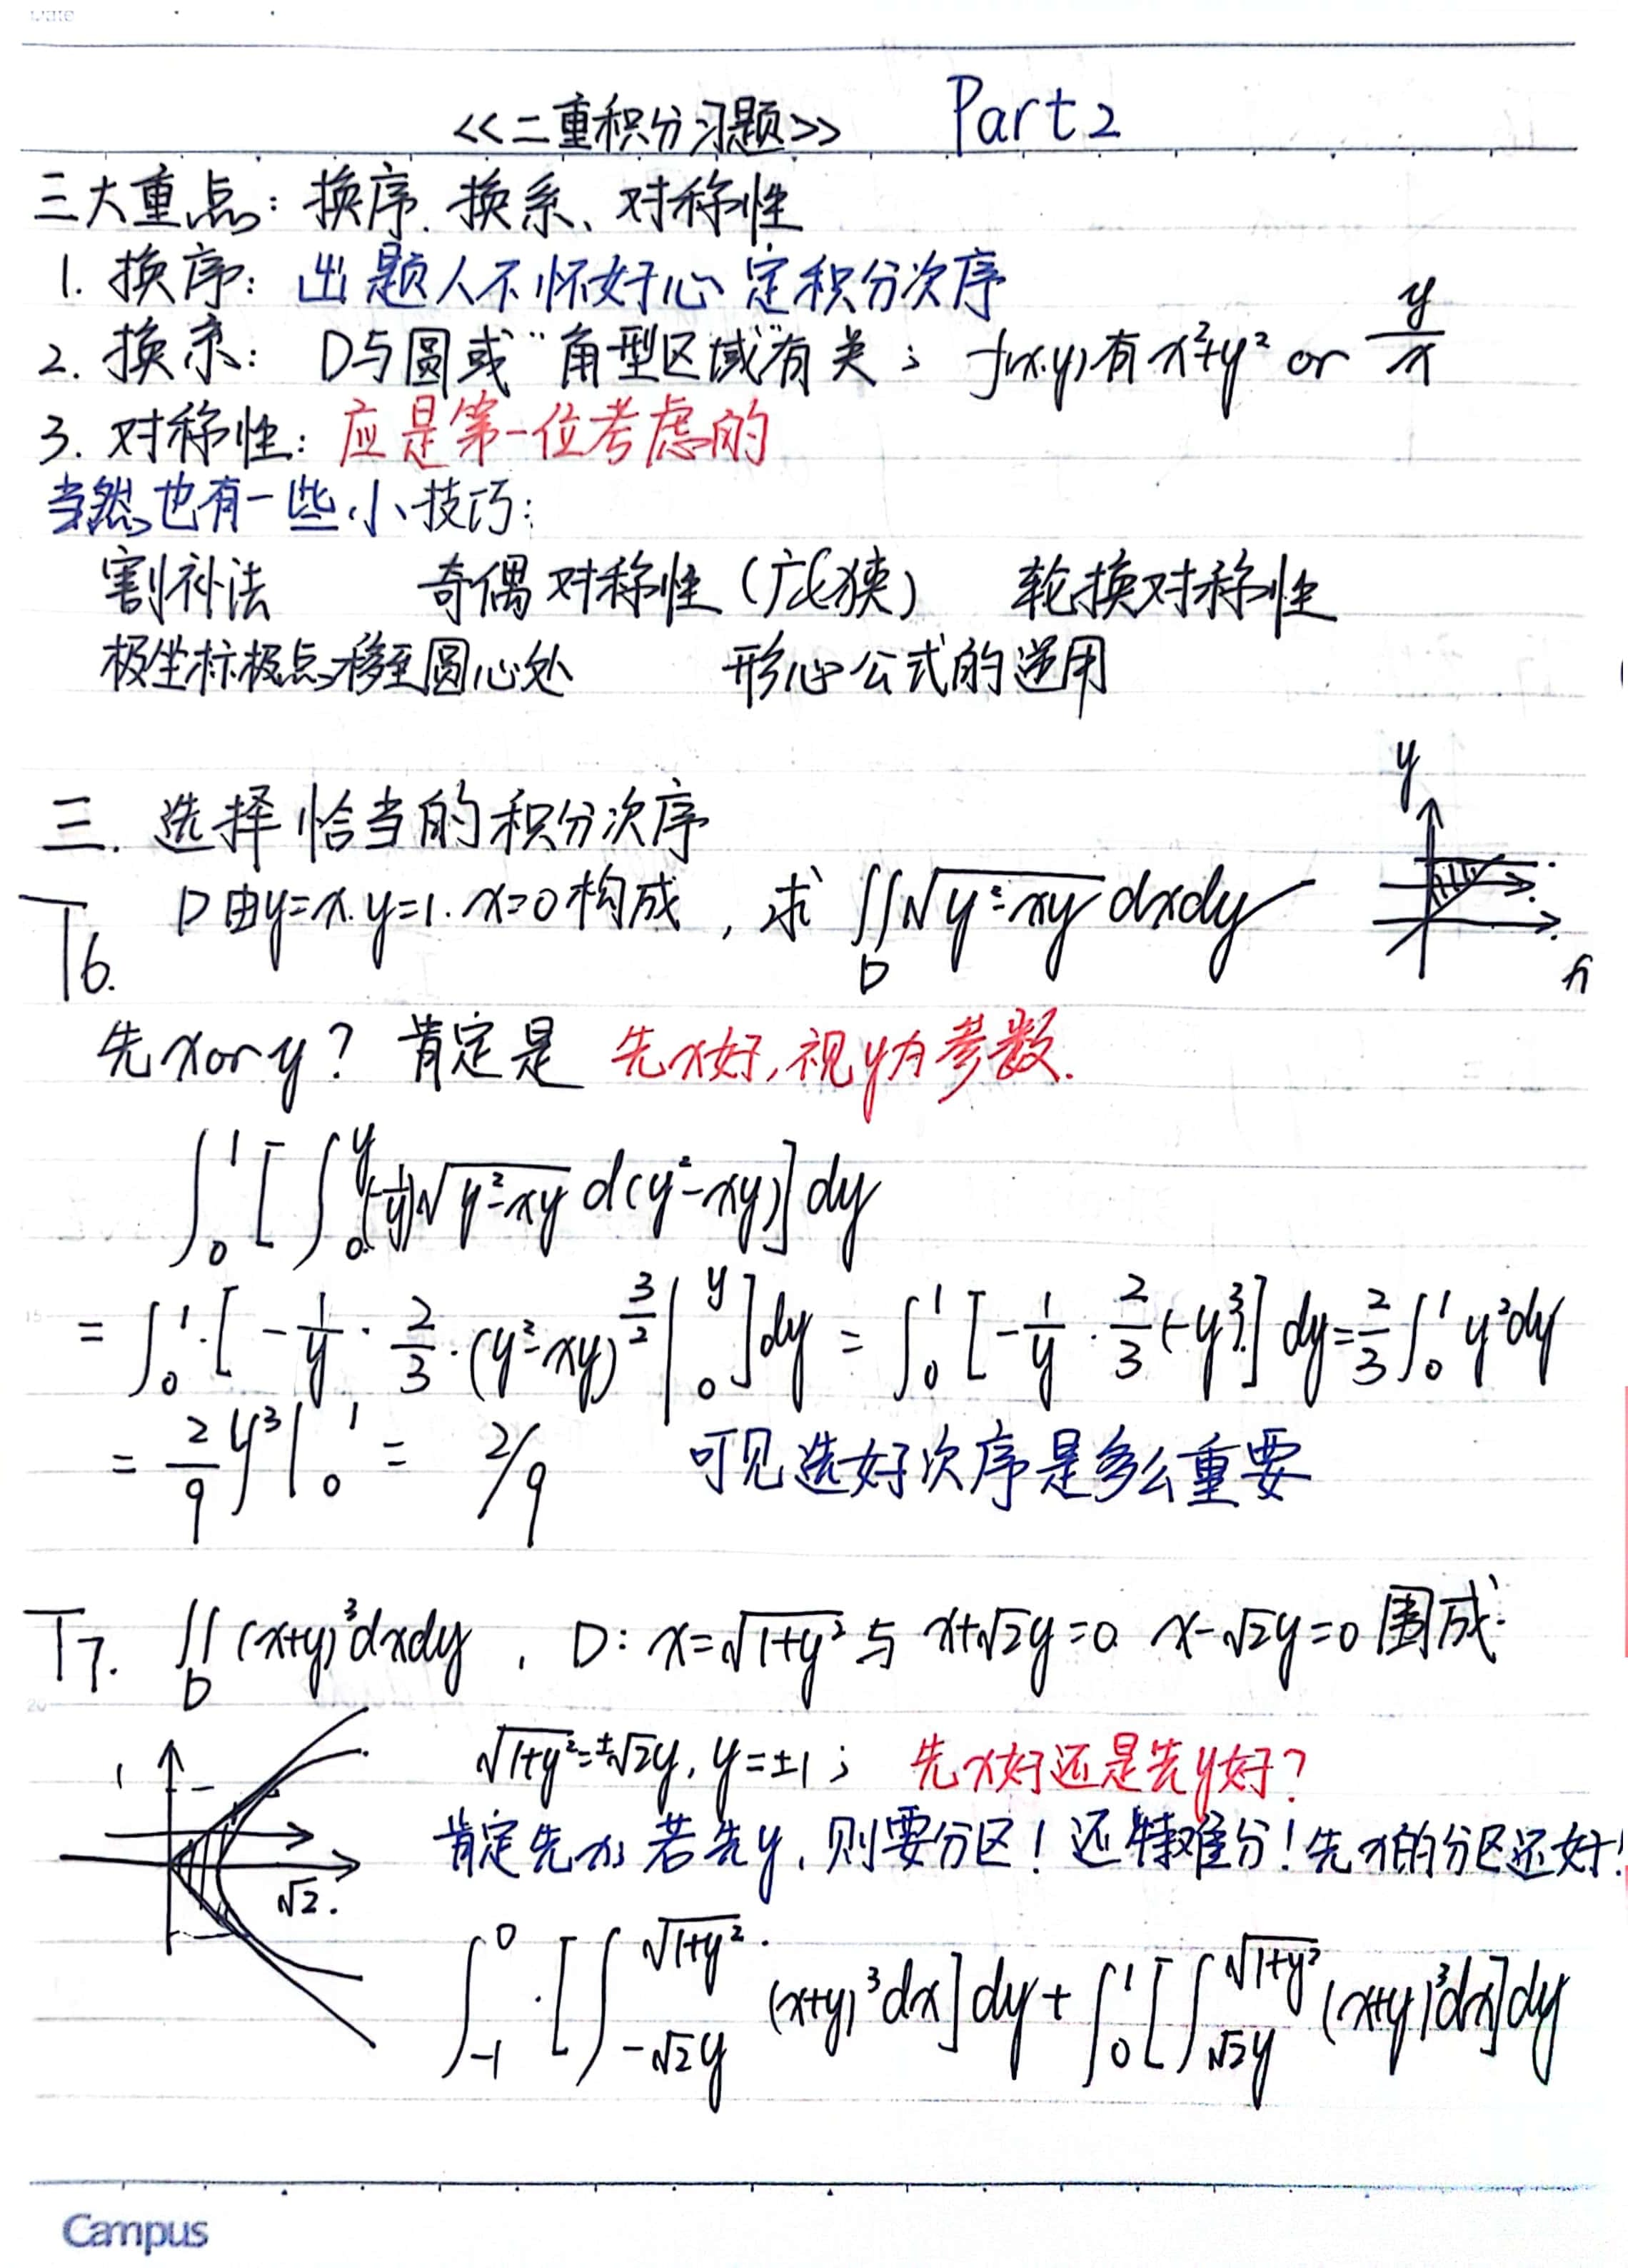 Date
<<二重积分习题>> Part 2
三大重点：换序、换系、对称性
1. 换序：出题人不怀好心 定积分次序
2. 换系：D与圆或“角型区域”有关；f(x,y)有x²+y² or y/x
3. 对称性：应是第一位考虑的
当然也有一些小技巧：
割补法 奇偶对称性（广&狭） 轮换对称性
极坐标极点移至圆心处 形心公式的逆用
三. 选择恰当的积分次序
T6. D由y=x. y=1. x=0构成，求 ∬_D √(y²-xy) dxdy
y
x
先x or y？肯定是 先x好，视y为参数.
∫_0^1 [∫_0^y (-1/y)√(y²-xy) d(y²-xy)] dy
= ∫_0^1 [-1/y · 2/3 · (y²-xy)^(3/2) |_0^y] dy = ∫_0^1 [-1/y · 2/3 (-y³)] dy = 2/3 ∫_0^1 y²dy
= 2/9 y³ |_0^1 = 2/9 可见选好次序是多么重要
T7. ∬_D (x+y)³dxdy ， D: x=√(1+y²) 与 x+√2y=0. x-√2y=0 围成.
√(1+y²)=±√2y, y=±1； 先x好还是先y好？
肯定先x, 若先y, 则要分区！还特难分！先x的分区还好！
1
√2.
∫_-1^0 [∫_-√2y^√(1+y²) (x+y)³dx] dy + ∫_0^1 [∫_√2y^√(1+y²) (x+y)³dx] dy
15
20
Campus